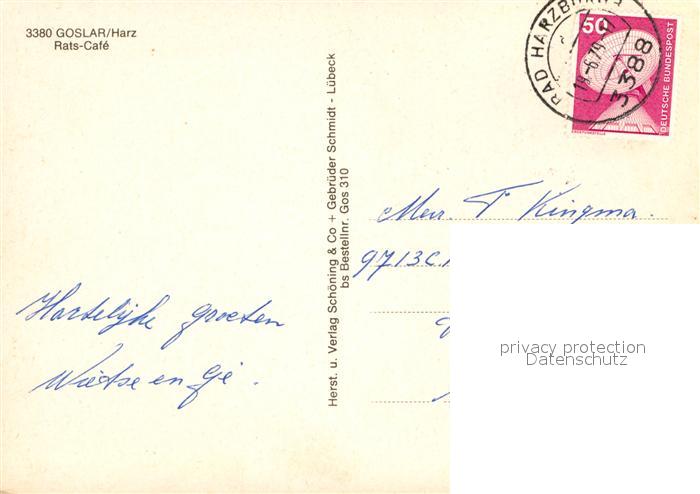 3380 GOSLAR/Harz
Rats-Café
Hartelijke groeten
Wietse en
Herst. u. Verlag Schöning & Co + Gebrüder Schmidt - Lübeck
bs Bestellnr. Gos 310
BAD HARZBURG
3388
50
DEUTSCHE BUNDESPOST
T Kingma.
9713C
privacy protection
Datenschutz